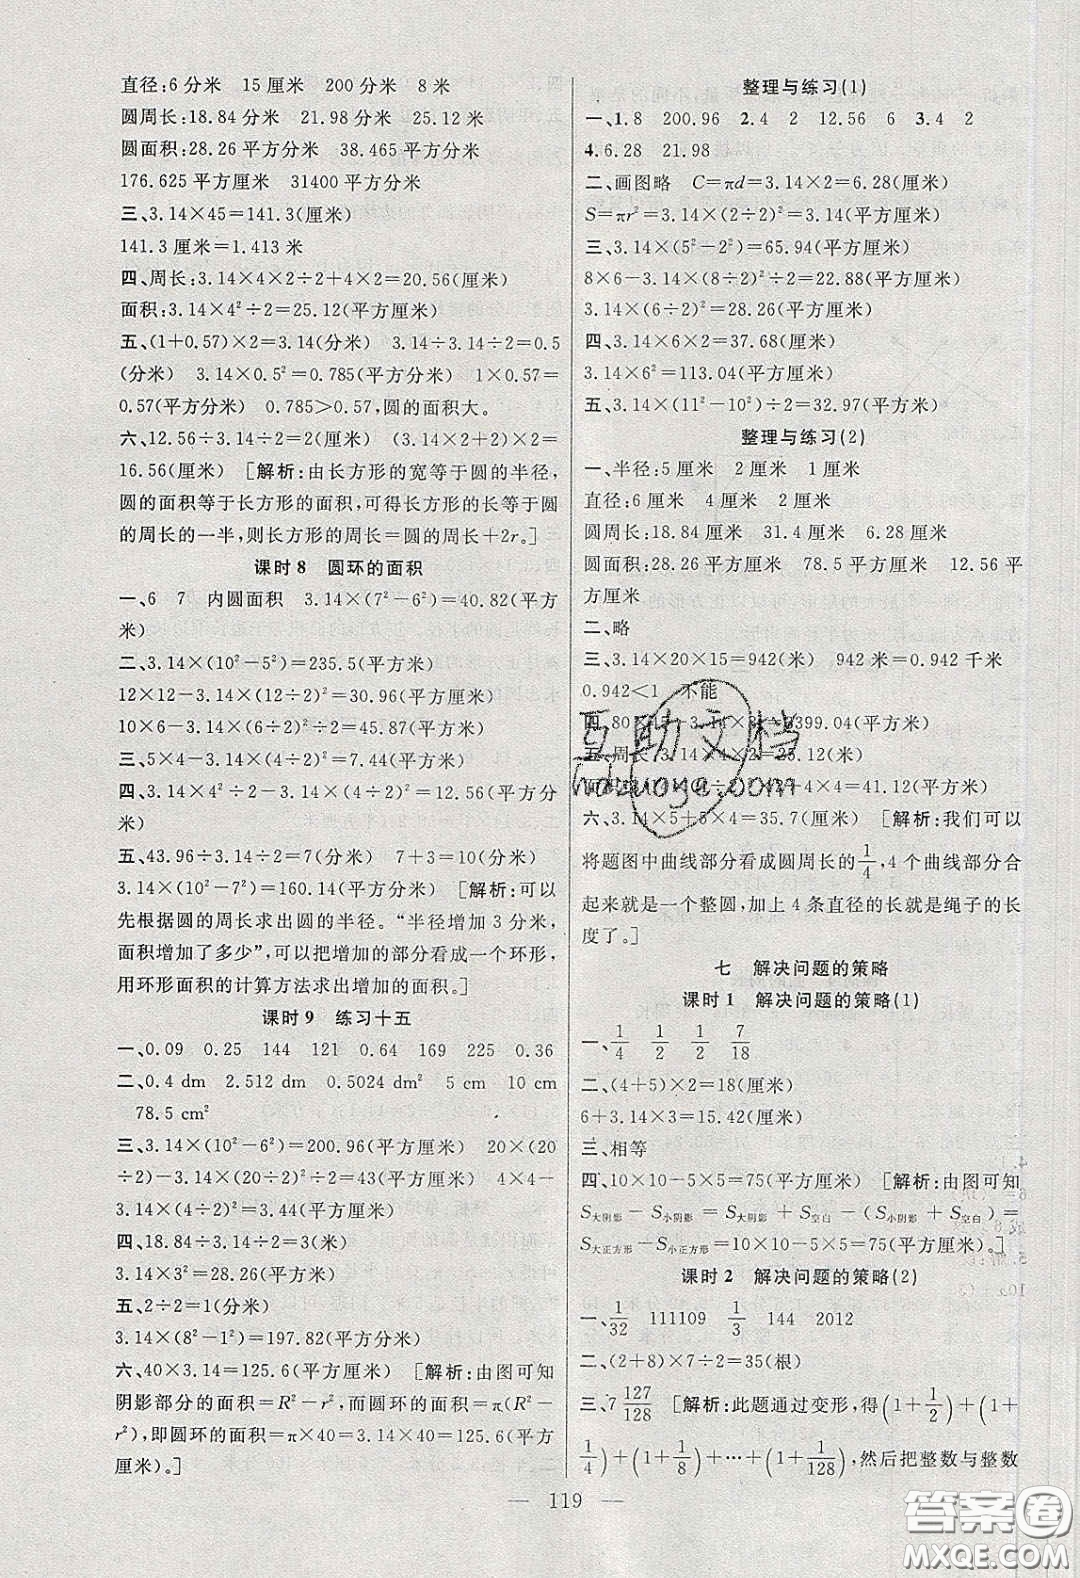 直径:6分米 15厘米 200分米 8米
圆周长:18.84分米 21.98厘米 25.12米
圆面积:28.26平方分米 38.465平方厘米
176.625平方厘米 31400平方分米
三、3.14×45=141.3(厘米)
141.3厘米=1.413米
四、周长:3.14×4×2÷2+4×2=20.56(厘米)
面积:3.14×4²÷2=25.12(平方厘米)
五、(1+0.57)×2=3.14(分米) 3.14÷3.14÷2=0.5
(分米) 3.14×0.5²=0.785(平方分米) 1×0.57=
0.57(平方分米) 0.785>0.57,圆的面积大。
六、12.56÷3.14÷2=2(厘米) (3.14×2+2)×2=
16.56(厘米) [解析:由长方形的宽等于圆的半径,
圆的面积等于长方形的面积,可得长方形的长等于圆
的周长的一半,则长方形的周长=圆的周长+2r。]
课时8 圆环的面积
一、6 7 内圆面积 3.14×(7²-6²)=40.82(平方分
米)
二、3.14×(10²-5²)=235.5(平方米)
12×12-3.14×(12÷2)²=30.96(平方厘米)
10×6-3.14×(6÷2)²÷2=45.87(平方米)
三、5×4-3.14×4²÷4=7.44(平方厘米)
四、3.14×4²÷2-3.14×(4÷2)²=12.56(平方厘
米)
五、43.96÷3.14÷2=7(分米) 7+3=10(分米)
3.14×(10²-7²)=160.14(平方分米) [解析:可以
先根据圆的周长求出圆的半径。“半径增加3分米,
面积增加了多少”,可以把增加的部分看成一个环形,
用环形面积的计算方法求出增加的面积。]
课时9 练习十五
一、0.09 0.25 144 121 0.64 169 225 0.36
二、0.4 dm 2.512 dm 0.5024 dm² 5 cm 10 cm
78.5 cm²
三、3.14×(10²-6²)=200.96(平方厘米) 20×(20
÷2)-3.14×(20÷2)²÷2=43(平方厘米) 4×4-
3.14×(4÷2)²=3.44(平方厘米)
四、18.84÷3.14÷2=3(米)
3.14×3²=28.26(平方米)
五、2÷2=1(分米)
3.14×(8²-1²)=197.82(平方分米)
六、40×3.14=125.6(平方厘米) [解析:由图可知
阴影部分的面积=R²-r²,而圆环的面积=π(R²-
r²),即圆环的面积=π×40=3.14×40=125.6(平方
厘米)。]
整理与练习(1)
一、1.8 200.96 2.4 2 12.56 6 3.4 2
4.6.28 21.98
二、画图略 C=πd=3.14×2=6.28(厘米)
S=πr²=3.14×(2÷2)²=3.14(平方厘米)
三、3.14×(5²-2²)=65.94(平方厘米)
8×6-3.14×(8÷2)²÷2=22.88(平方厘米)
3.14×(6÷2)²=28.26(平方厘米)
四、3.14×6×2=37.68(厘米)
3.14×6²=113.04(平方厘米)
五、3.14×(11²-10²)÷2=32.97(平方米)
整理与练习(2)
一、半径:5厘米 2厘米 1厘米
直径:6厘米 4厘米 2厘米
圆周长:18.84厘米 31.4厘米 6.28厘米
圆面积:28.26平方厘米 78.5平方厘米 12.56平
方厘米
二、略
三、3.14×20×15=942(米) 942米=0.942千米
0.942<1 不能
四、80×15-3.14×399.04(平方米)
五、周长:3.14×4×2÷2=25.12(厘米)
六、3.14×5+5×4=35.7(厘米) [解析:我们可以
将题图中曲线部分看成圆周长的1/4,4个曲线部分合
起来就是一个整圆,加上4条直径的长就是绳子的长
度了。]
七 解决问题的策略
课时1 解决问题的策略(1)
一、1/4 1/2 1/2 7/18
二、(4+5)×2=18(厘米)
6+3.14×3=15.42(厘米)
三、相等
四、10×10-5×5=75(平方厘米) [解析:由图可知
S大阴影-S小阴影=S大阴影+S空白-(S小阴影+S空白)=
S大正方形-S小正方形=10×10-5×5=75(平方厘米)。]
课时2 解决问题的策略(2)
一、1/32 111109 1/3 144 2012
二、(2+8)×7÷2=35(根)
三、7 127/128 [解析:此题通过变形,得(1+1/2)+(1+
1/4)+(1+1/8)+…+(1+1/128),然后把整数与整数
119
互助文档
hdzuoye.com
答案圈
MXQE.COM